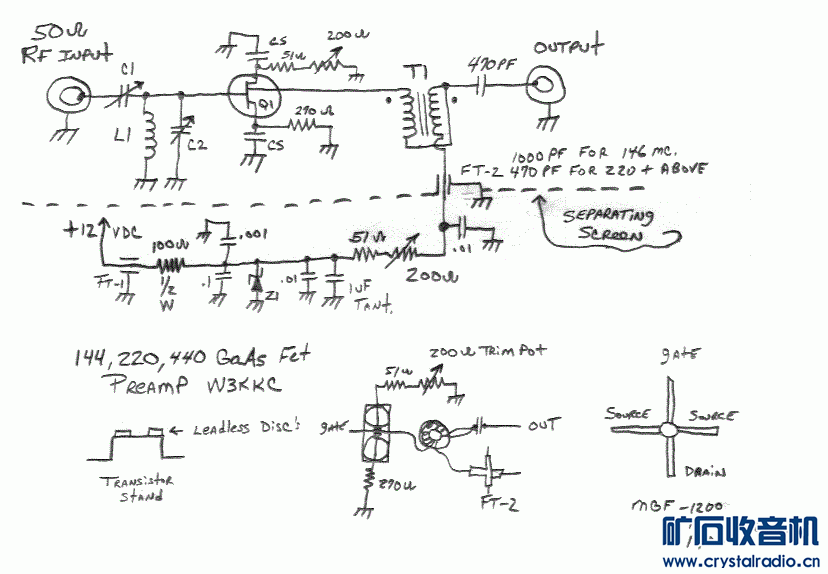 50Ω
RF INPUT
C1
L1
C2
CS
51Ω
200Ω
Q1
270Ω
CS
T1
470PF
OUTPUT
1000 PF FOR 146 MC.
FT-2 470 PF FOR 220 + ABOVE
SEPARATING
SCREEN
+12 VDC
FT-1
100Ω
1/2
W
.001
.1
Z1
.01
1UF
TANT.
51Ω
200Ω
.01
144, 220, 440 GaAs Fet
PREAMP W3KKC
LEADLESS DISC'S
TRANSISTOR
STAND
200Ω TRIM POT
51Ω
GATE
OUT
270Ω
FT-2
GATE
SOURCE SOURCE
DRAIN
MGF-1200
矿石收音机
www.crystalradio.cn